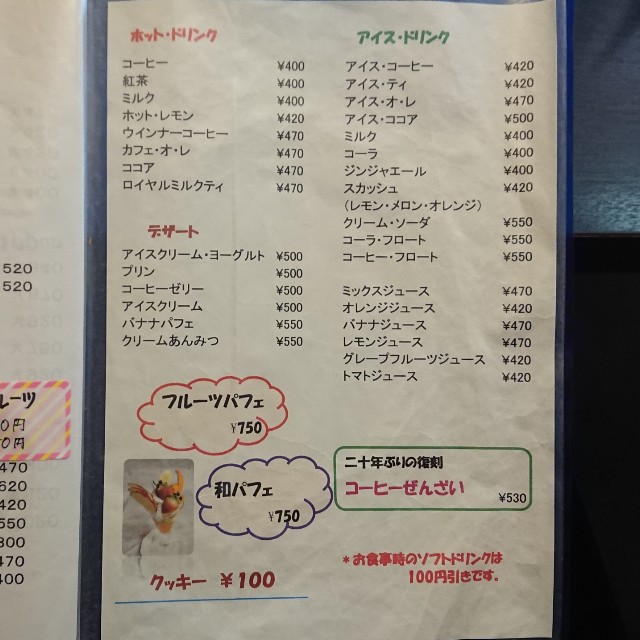 ホット・ドリンク
コーヒー ¥400
紅茶 ¥400
ミルク ¥400
ホット・レモン ¥420
ウインナーコーヒー ¥470
カフェ・オ・レ ¥470
ココア ¥470
ロイヤルミルクティ ¥470
デザート
アイスクリーム・ヨーグルト ¥500
プリン ¥500
コーヒーゼリー ¥500
アイスクリーム ¥500
バナナパフェ ¥550
クリームあんみつ ¥550
フルーツパフェ
¥750
和パフェ
¥750
クッキー ¥100
アイス・ドリンク
アイス・コーヒー ¥420
アイス・ティ ¥420
アイス・オ・レ ¥470
アイス・ココア ¥500
ミルク ¥400
コーラ ¥400
ジンジャエール ¥400
スカッシュ ¥420
（レモン・メロン・オレンジ）
クリーム・ソーダ ¥550
コーラ・フロート ¥550
コーヒー・フロート ¥550
ミックスジュース ¥470
オレンジジュース ¥420
バナナジュース ¥470
レモンジュース ¥470
グレープフルーツジュース ¥420
トマトジュース ¥420
二十年ぶりの復刻
コーヒーぜんざい ¥530
*お食事時のソフトドリンクは
100円引きです。
520
520
ルーツ
0円
0円
470
620
420
550
300
470
400